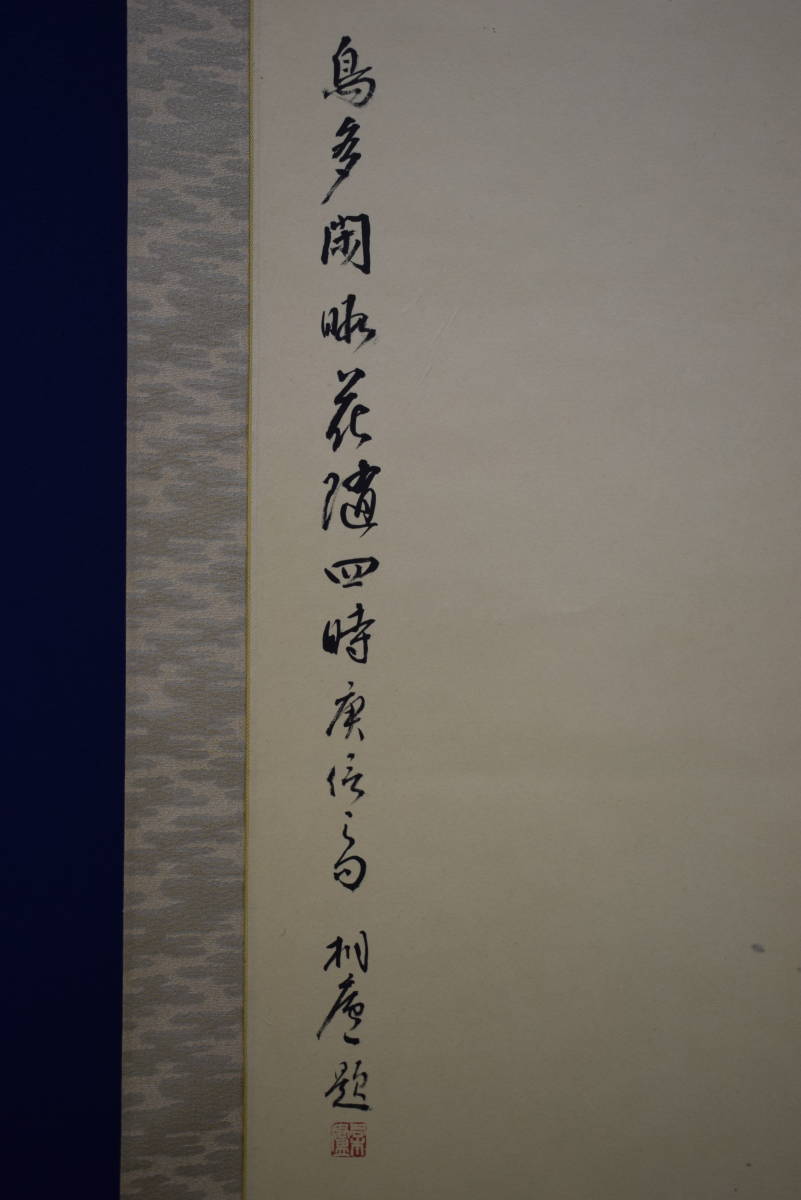 鳥多閑暇花隨四時庾信之句 桐庵題